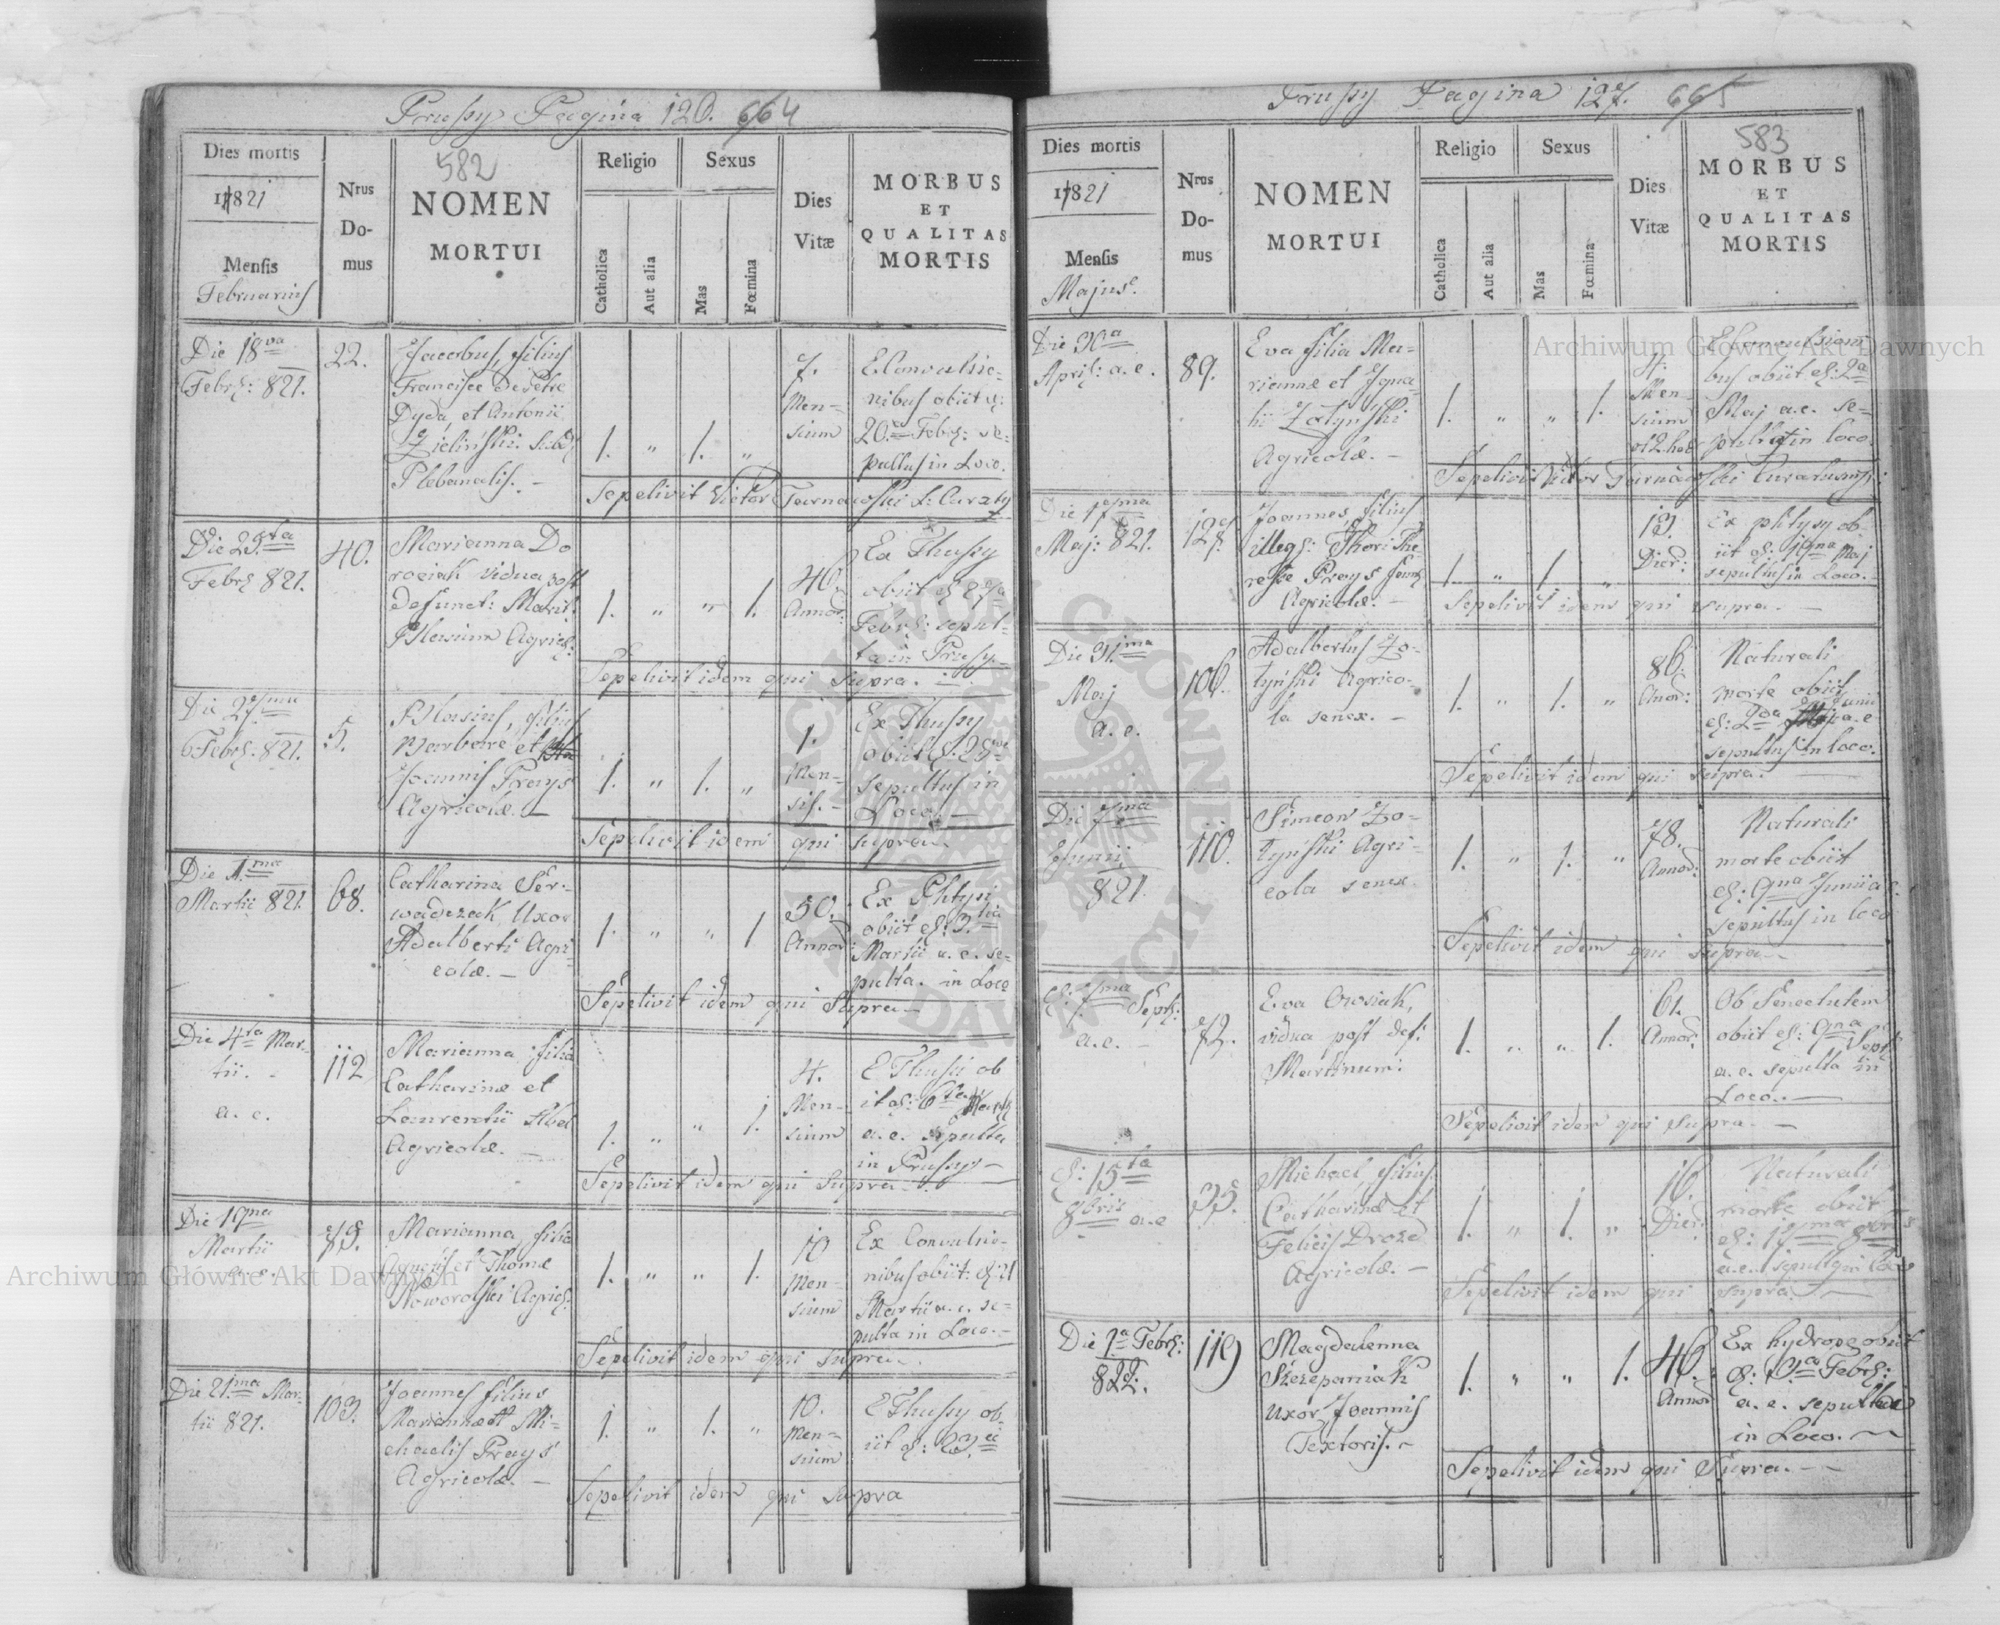 Prussy Pagina 126. 664
Dies mortis
1821
Mensis
Februarius
Nrus
Do-
mus
582
NOMEN
MORTUI
Religio
Catholica
Aut alia
Sexus
Mas
Fœmina
Dies
Vitæ
MORBUS
ET
QUALITAS
MORTIS
Die 18va
Febr: 821.
22.
Jacobus, filius
Francisce de Patre
Dyda, et Antonii
Zieliński Subd:
Plebanalis. –
1. " 1. "
7.
Men-
sium
E Convulsio-
nibus obiit
20 Febr: se-
pultus in Loco.
Sepelivit Victor Tarnawski
Febr: 821.
40.
Marianna Do
rociak vidua post
defunct: Marit:
Blasium Agric:
1. " " 1.
46.
Annor:
Ex Thussy
obiit
Febr: sepul-
ta in Prussy
Sepelivit idem qui supra.
Die 27ma
Febr: 821.
5.
Blasius, filius
Barbare et
Joannis Prays
Agricolæ.
1. " 1. "
1.
Men-
sis.
Ex Thussy
obiit
sepultus in
Loco.
Sepelivit idem qui supra.
Die 1ma
Martii 821.
68.
Catharina Ser-
wadczak, Uxor
Adalberti Agri-
colæ. –
1. " " 1
50.
Annor:
Ex Phtysi
obiit d: 3tia
Martii a. c. se-
pulta. in Loco
Sepelivit idem qui Supra
Die 4ta Mar-
tii.
a. c.
112
Marianna filia
Catharinæ et
Laurentii
Agricolæ. –
1. " " 1.
4.
Men-
sium
E Thussi ob
iit d: 6ta
a. c. sepulta
in Prussy
Sepelivit idem qui Supra
Die 19na
Martii
a. c.
Marianna, filia
Agnetis et Thomæ
Noworolski Agric:
1. " " 1.
10
Men-
sium
Ex Convulsio-
nibus obiit: d: 21
Martii a. c. se-
pulta in Loco.
Sepelivit idem qui supra.
Die 21ma Mar-
tii 821.
103.
Joannes filius
Mariannæ et Mi-
chaelis Prays
Agricolæ. –
1. " 1. "
10.
Men-
sium
E Thussy ob-
iit d: 23
Sepelivit idem qui supra
Prussy Pagina 127. 665
Dies mortis
1821
Mensis
Majus
Nros
Do-
mus
NOMEN
MORTUI
Religio
Catholica
Aut alia
Sexus
Mas
Fœmina
Dies
Vitæ
583
MORBUS
ET
QUALITAS
MORTIS
Die 30a
April: a. c.
89.
Eva filia Ma-
riannæ et Igna-
tii Zotyński
Agricolæ. –
1. " " 1.
Men-
sium
E Convulsioni
bus obiit d: 2a
Maj a. c. se-
pulta in loco
Sepelivit Victor Tarnawski
Maj: 821.
Joannes, filius
illeg: Thori The
resæ Prays
Agricolæ. –
1. " 1. "
Dier:
Ex phtysy ob-
iit
sepultus in Loco.
Sepelivit idem qui supra. –
Die 31ma
Maj
a. c.
106.
Adalbertus Zo-
tyński Agrico-
la senex. –
1. " 1. "
86.
Annor:
Naturali
morte obiit
d: 2da Junii a. c.
sepultus in loco.
Sepelivit idem qui supra.
Die 7ma
Junii
821.
110.
Simeon Zo-
tyński Agri-
cola senex.
1. " 1. "
78.
Annor:
Naturali
morte obiit
d: 9na Junii a. c.
sepultus in loco
Sepelivit idem qui supra
d: 7ma Septr:
a. c.
72.
Eva Owsiak,
vidua post def:
Martinum:
1. " " 1.
61.
Annor:
Ob Senectutem
obiit d: 9na Sept
a. c. sepulta in
Loco.
Sepelivit idem qui supra.
d: 15ta
a. c.
35.
Michael, filius
Catharinæ et
Felicis Drozd
Agricolæ. –
1. " 1. "
16.
Dier:
Naturali
morte obiit
d: 17ma
a. c. sepult: in Loco
Sepelivit idem qui supra.
Die 1a Febr:
822.
119
Magdalenna
Szczepaniak
uxor Joannis
Textoris. –
1. " " 1.
46.
Annor
Ex hydrope obiit
d: 3a Febr:
a. c. sepulta
in Loco.
Sepelivit idem qui Supra. –
Archiwum Główne Akt Dawnych
Archiwum Główne Akt Dawnych
ARCHIWUM GŁÓWNE AKT DAWNYCH